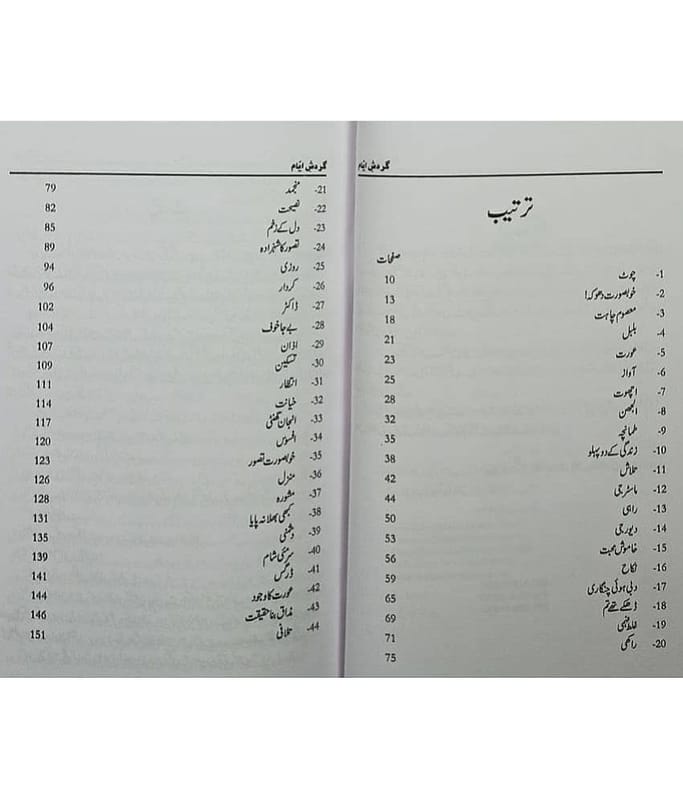 گردشِ ایّام
ترتیب
صفحات
1- چوٹ 10
2- خوبصورت دھوکہ! 13
3- معصوم چاہت 18
4- بلبل 21
5- عورت 23
6- آواز 25
7- اچھوت 28
8- الجھن 32
9- طمانچہ 35
10- زندگی کے دو پہلو 38
11- تلاش 42
12- ماسٹر جی 44
13- راہی 50
14- دیور جی 53
15- خاموش محبت 56
16- نکاح 59
17- دبی ہوئی چنگاری 65
18- تھے تم 69
19- غلط فہمی 71
20- راکھی 75
گردشِ ایّام
21- منجمد 79
22- نصیحت 82
23- دل کے زخم 85
24- تصور کا شہزادہ 89
25- روزی 94
26- کردار 96
27- ڈاکٹر 102
28- بے جا خوف 104
29- اذان 107
30- تسکین 109
31- انتظار 111
32- خیانت 114
33- انجان گھنٹی 117
34- افسوس 120
35- خوبصورت تصور 123
36- منزل 126
37- مشورہ 128
38- کبھی بھلا نہ پایا 131
39- دشمنی 135
40- سرمئی شام 139
41- ڈرگس 141
42- عورت کا وجود 144
43- مذاق بنا حقیقت 146
44- تلافی 151